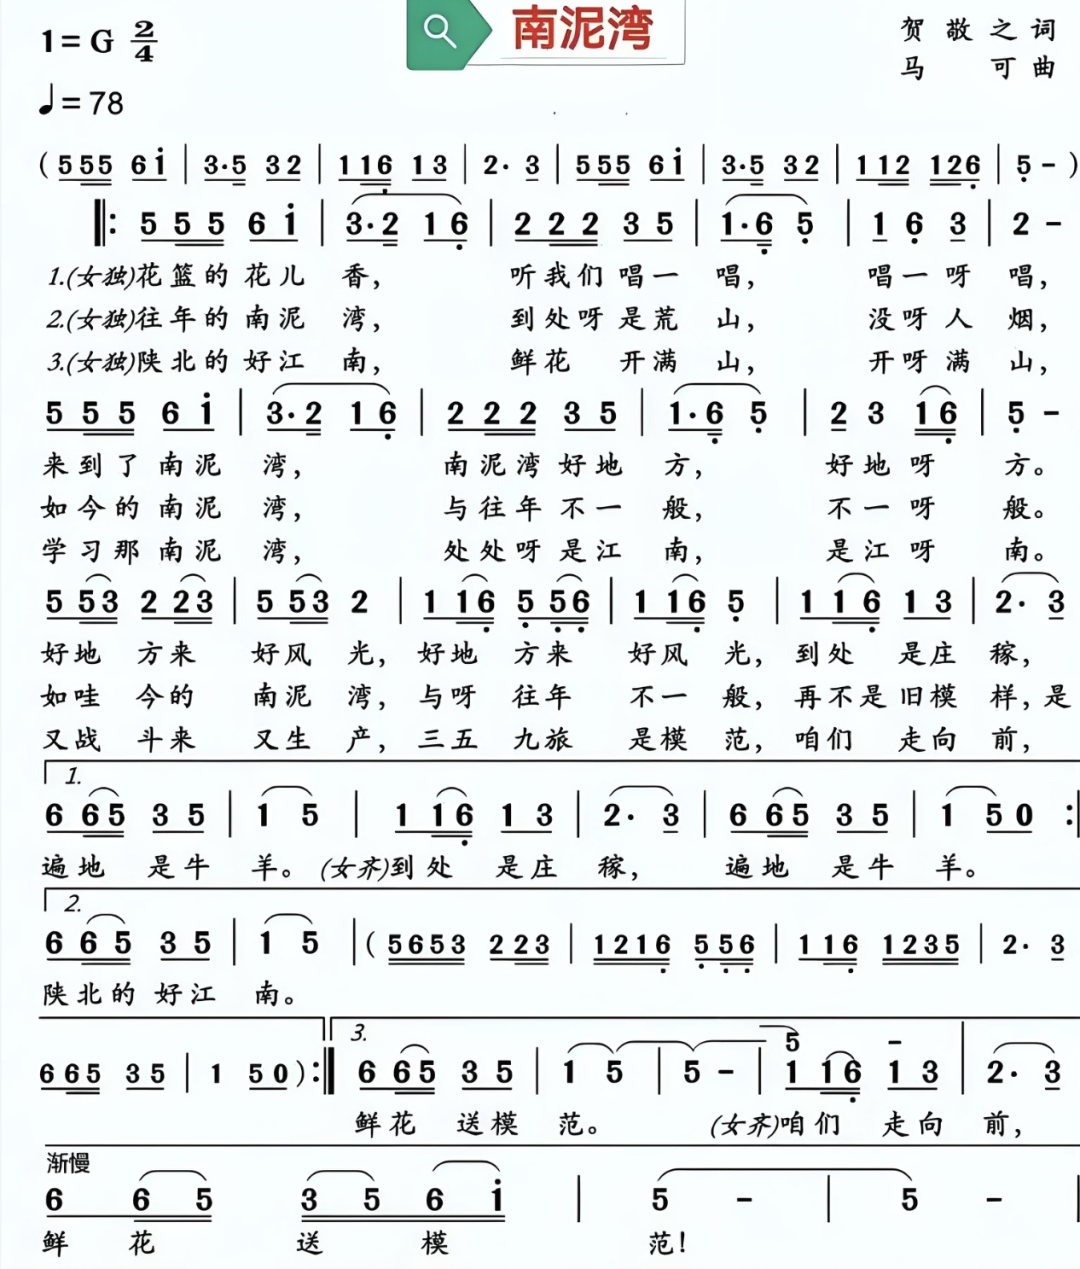 南泥湾
1=G 2/4
贺敬之词
马可曲
♩=78
(5 55 6i | 3·5 32 | 1 16 13 | 2· 3 | 5 55 6i | 3·5 32 | 1 12 126 | 5 - )
‖: 5 5 5 6 i | 3·2 1 6 | 2 2 2 3 5 | 1·6 5 | 1 6 3 | 2 -
1.(女独)花篮的 花儿 香, 听我们唱一 唱, 唱一呀 唱,
2.(女独)往年的 南泥 湾, 到处呀是荒 山, 没呀人 烟,
3.(女独)陕北的 好江 南, 鲜花 开满 山, 开呀满 山,
5 5 5 6 i | 3·2 1 6 | 2 2 2 3 5 | 1·6 5 | 2 3 16 | 5 -
来到了 南泥 湾, 南泥湾好地 方, 好地 呀 方。
如今的 南泥 湾, 与往年不一 般, 不一 呀 般。
学习那 南泥 湾, 处处呀是江 南, 是江 呀 南。
5 53 2 23 | 5 53 2 | 1 16 5 56 | 1 16 5 | 1 16 13 | 2· 3
好地 方来 好风 光, 好地 方来 好风 光, 到处 是庄 稼,
如哇 今的 南泥 湾, 与呀 往年 不一 般, 再不是旧模 样, 是
又战 斗来 又生 产, 三五 九旅 是模 范, 咱们 走向 前,
1.
6 65 3 5 | 1 5 | 1 16 1 3 | 2· 3 | 6 65 3 5 | 1 50 :|
遍地 是牛 羊。(女齐)到处 是庄 稼, 遍地 是牛 羊。
2.
6 65 3 5 | 1 5 |( 5653 223 | 1216 5 56 | 1 16 1235 | 2· 3
陕北的 好江 南。
3.
665 35 | 1 50 ):‖ 6 65 3 5 | 1 5 | 5 - | 5 - 1 16 1 3 | 2· 3
鲜花 送模 范。 (女齐)咱们 走向 前,
渐慢
6 6 5 3 5 6 i | 5 - | 5 - |
鲜 花 送 模 范!